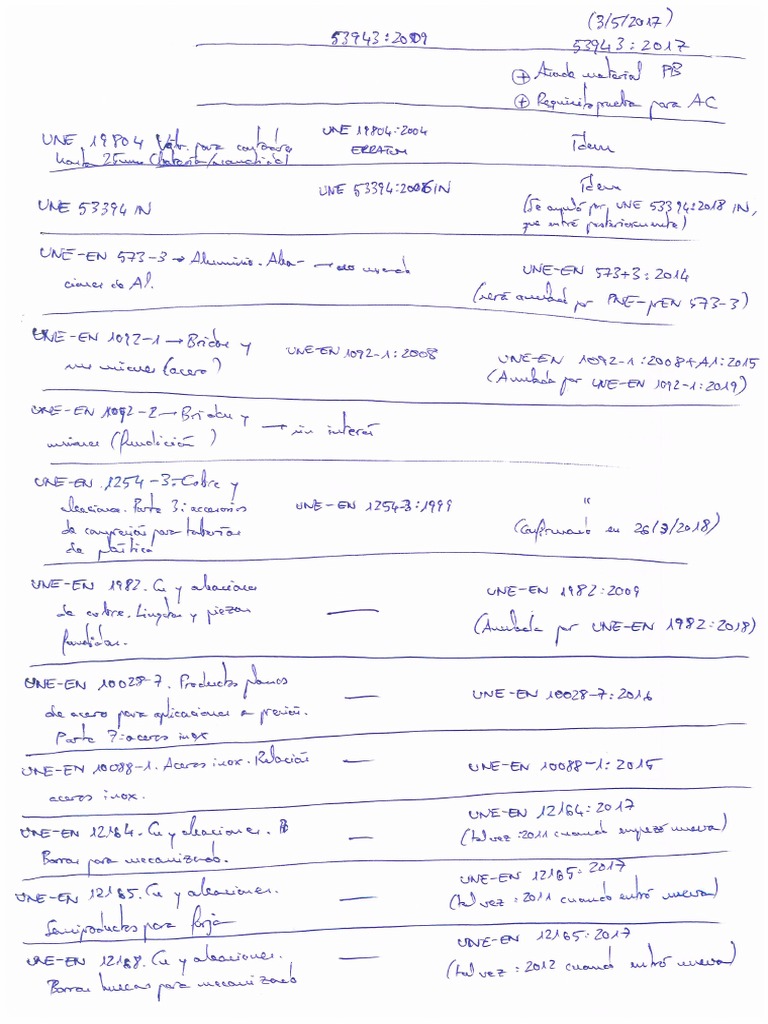 (3/5/2017)
53943:2009
53943:2017
+ Añade material PB
+ Requisito prueba para AC
UNE 19804 Válv. para contadores
hasta 25mm (batería/acometida)
UNE 19804:2004
ERRATUM
Idem
UNE 53394 IN
UNE 53394:2006 IN
Idem
(Se anuló por UNE 53394:2018 IN,
que entró posteriormente)
UNE-EN 573-3 → Aluminio. Alea-
ciones de Al.
→
UNE-EN 573+3:2014
(será anulada por PNE-prEN 573-3)
UNE-EN 1092-1 → Bridas y
sus uniones (acero)
UNE-EN 1092-1:2008
UNE-EN 1092-1:2008+A1:2015
(Anulada por UNE-EN 1092-1:2019)
UNE-EN 1092-2 → Bridas y
uniones (fundición)
→ sin interés
UNE-EN 1254-3: Cobre y
aleaciones. Parte 3: accesorios
de compresión para tuberías
de plástico
UNE-EN 1254-3:1999
"
(Confirmado en 26/3/2018)
UNE-EN 1982. Cu y aleaciones
de cobre. Lingotes y piezas
fundidas.
—
UNE-EN 1982:2009
(Anulada por UNE-EN 1982:2018)
UNE-EN 10028-7. Productos planos
de acero para aplicaciones a presión.
Parte 7: aceros inox
—
UNE-EN 10028-7:2016
UNE-EN 10088-1. Aceros inox. Relación
aceros inox.
—
UNE-EN 10088-1:2015
UNE-EN 12164. Cu y aleaciones.
Barras para mecanizado.
—
UNE-EN 12164:2017
(tal vez :2011 cuando empezó nueva)
UNE-EN 12165. Cu y aleaciones.
Semiproductos para forja
—
UNE-EN 12165:2017
(tal vez :2011 cuando entró nueva)
UNE-EN 12168. Cu y aleaciones.
Barras huecas para mecanizado
—
UNE-EN 12165:2017
(tal vez :2012 cuando entró nueva)